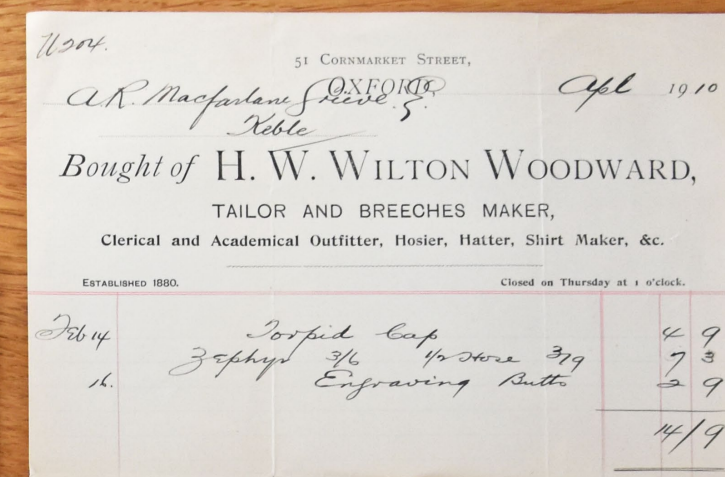 N204.
51 CORNMARKET STREET,
OXFORD,
Apl 1910
A.R. Macfarlane Grieve Esq.
Keble
Bought of H. W. WILTON WOODWARD,
TAILOR AND BREECHES MAKER,
Clerical and Academical Outfitter, Hosier, Hatter, Shirt Maker, &c.
ESTABLISHED 1880. Closed on Thursday at 1 o'clock.
Feb 14 Torpid Cap 4 9
Zephyr 3/6 1/2 Hose 3/9 7 3
16. Engraving Butts 2 9
14/9